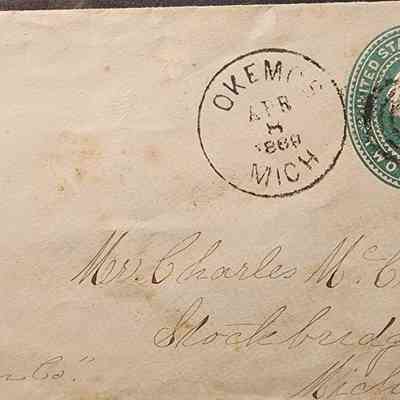 OKEMOS
APR
8
1889
MICH
UNITED STA
TWO
Mr. Charles Mc. C
Stockbridge
Mich
n Co."